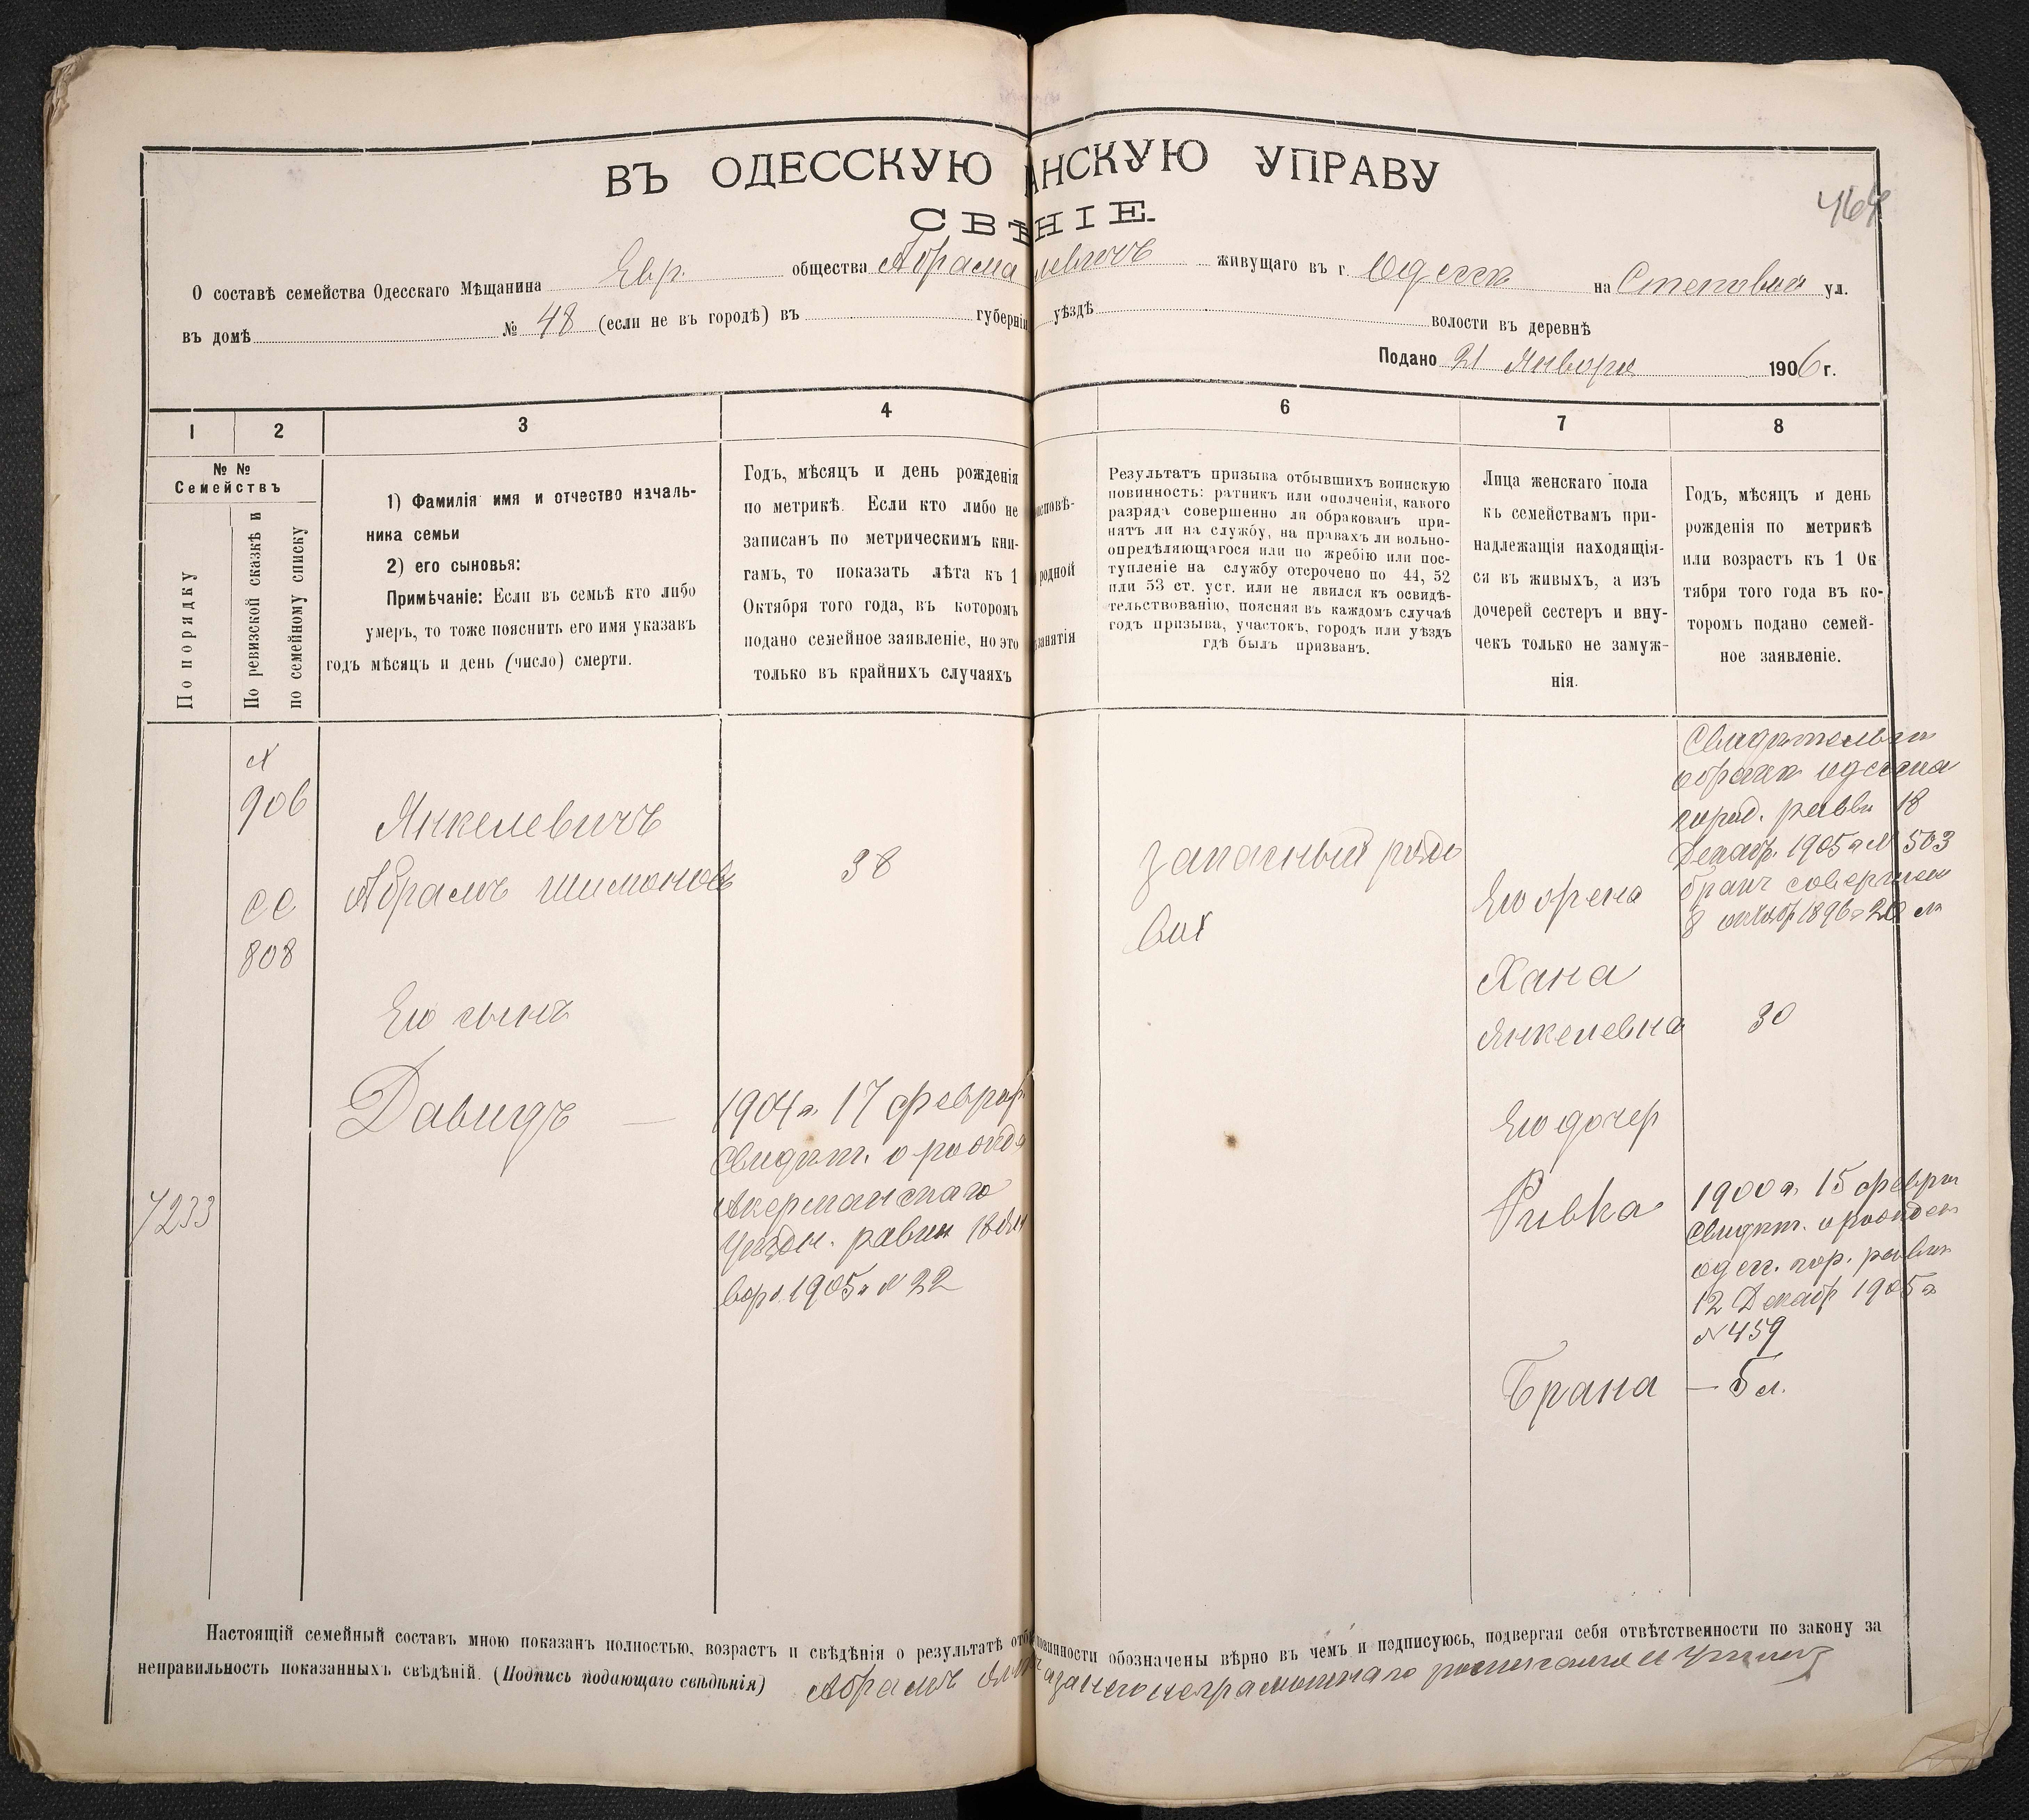 ВЪ ОДЕССКУЮ НСКУЮ УПРАВУ
СВѢНІЕ
О составѣ семейства Одесскаго Мѣщанина Евр. общества Абрама левичъ живущаго въ г. Одессѣ на Степовой ул.
въ домѣ № 48 (если не въ городѣ) въ губерніи уѣздѣ волости въ деревнѣ
Подано 21 Января 1906 г.
1
2
3
4
6
7
8
№ №
Семействъ
По порядку
По ревизской сказкѣ и
по семейному списку
1) Фамилія имя и отчество началь-
ника семьи
2) его сыновья:
Примѣчаніе: Если въ семьѣ кто либо
умеръ, то тоже пояснить его имя указавъ
годъ мѣсяцъ и день (число) смерти.
Годъ, мѣсяцъ и день рожденія
по метрикѣ. Если кто либо не
записанъ по метрическимъ кни-
гамъ, то показать лѣта къ 1
Октября того года, въ которомъ
подано семейное заявленіе, но это
только въ крайнихъ случаяхъ
исповѣ-
родной
занятія
Результатъ призыва отбывшихъ воинскую
повинность: ратникъ или ополченія, какого
разряда совершенно ли обракованъ при-
нятъ ли на службу, на правахъ ли вольно-
опредѣляющагося или по жребію или пос-
тупленіе на службу отсрочено по 44, 52
или 53 ст. уст. или не явился къ освидѣ-
тельствованію, поясняя въ каждомъ случаѣ
годъ призыва, участокъ, городъ или уѣздъ
гдѣ былъ призванъ.
Лица женскаго пола
къ семействамъ при-
надлежащія находящі-
ся въ живыхъ, а изъ
дочерей сестеръ и вну-
чекъ только не замуж-
нія.
Годъ, мѣсяцъ и день
рожденія по метрикѣ
или возрастъ къ 1 Ок
тября того года въ ко-
торомъ подано семей-
ное заявленіе.
906
808
7233
Янкелевичъ
Абрамъ Шимоновъ
38
Его сынъ
Давидъ —
1904 г. 17 феврал
Свидѣт. о рожд
Аккерманскаго
Уѣздн. равин 18 Ян
вар. 1905 г № 22
Запасный рядо
вой
Его жена
Хана
Янкелевна
30
Свидѣтельст
о бракѣ одесска
город. равви 18
Декабр. 1905 г № 503
бракъ совершен
8 октяб 1896 г 20 л
Его дочер
Ривка
1900 г. 15 февра
Свидѣт. о рожден
одесс. гор. равви
12 Декабр 1905 г
№ 459
Брана — 5 л.
Настоящій семейный составъ мною показанъ полностью, возрастъ и свѣдѣнія о результатѣ отб повинности обозначены вѣрно въ чемъ и подписуюсь, подвергая себя отвѣтственности по закону за
неправильность показанныхъ свѣдѣній. (Подпись подающаго свѣдѣнія) Абрамъ Янк а за него неграмотнаго росписался